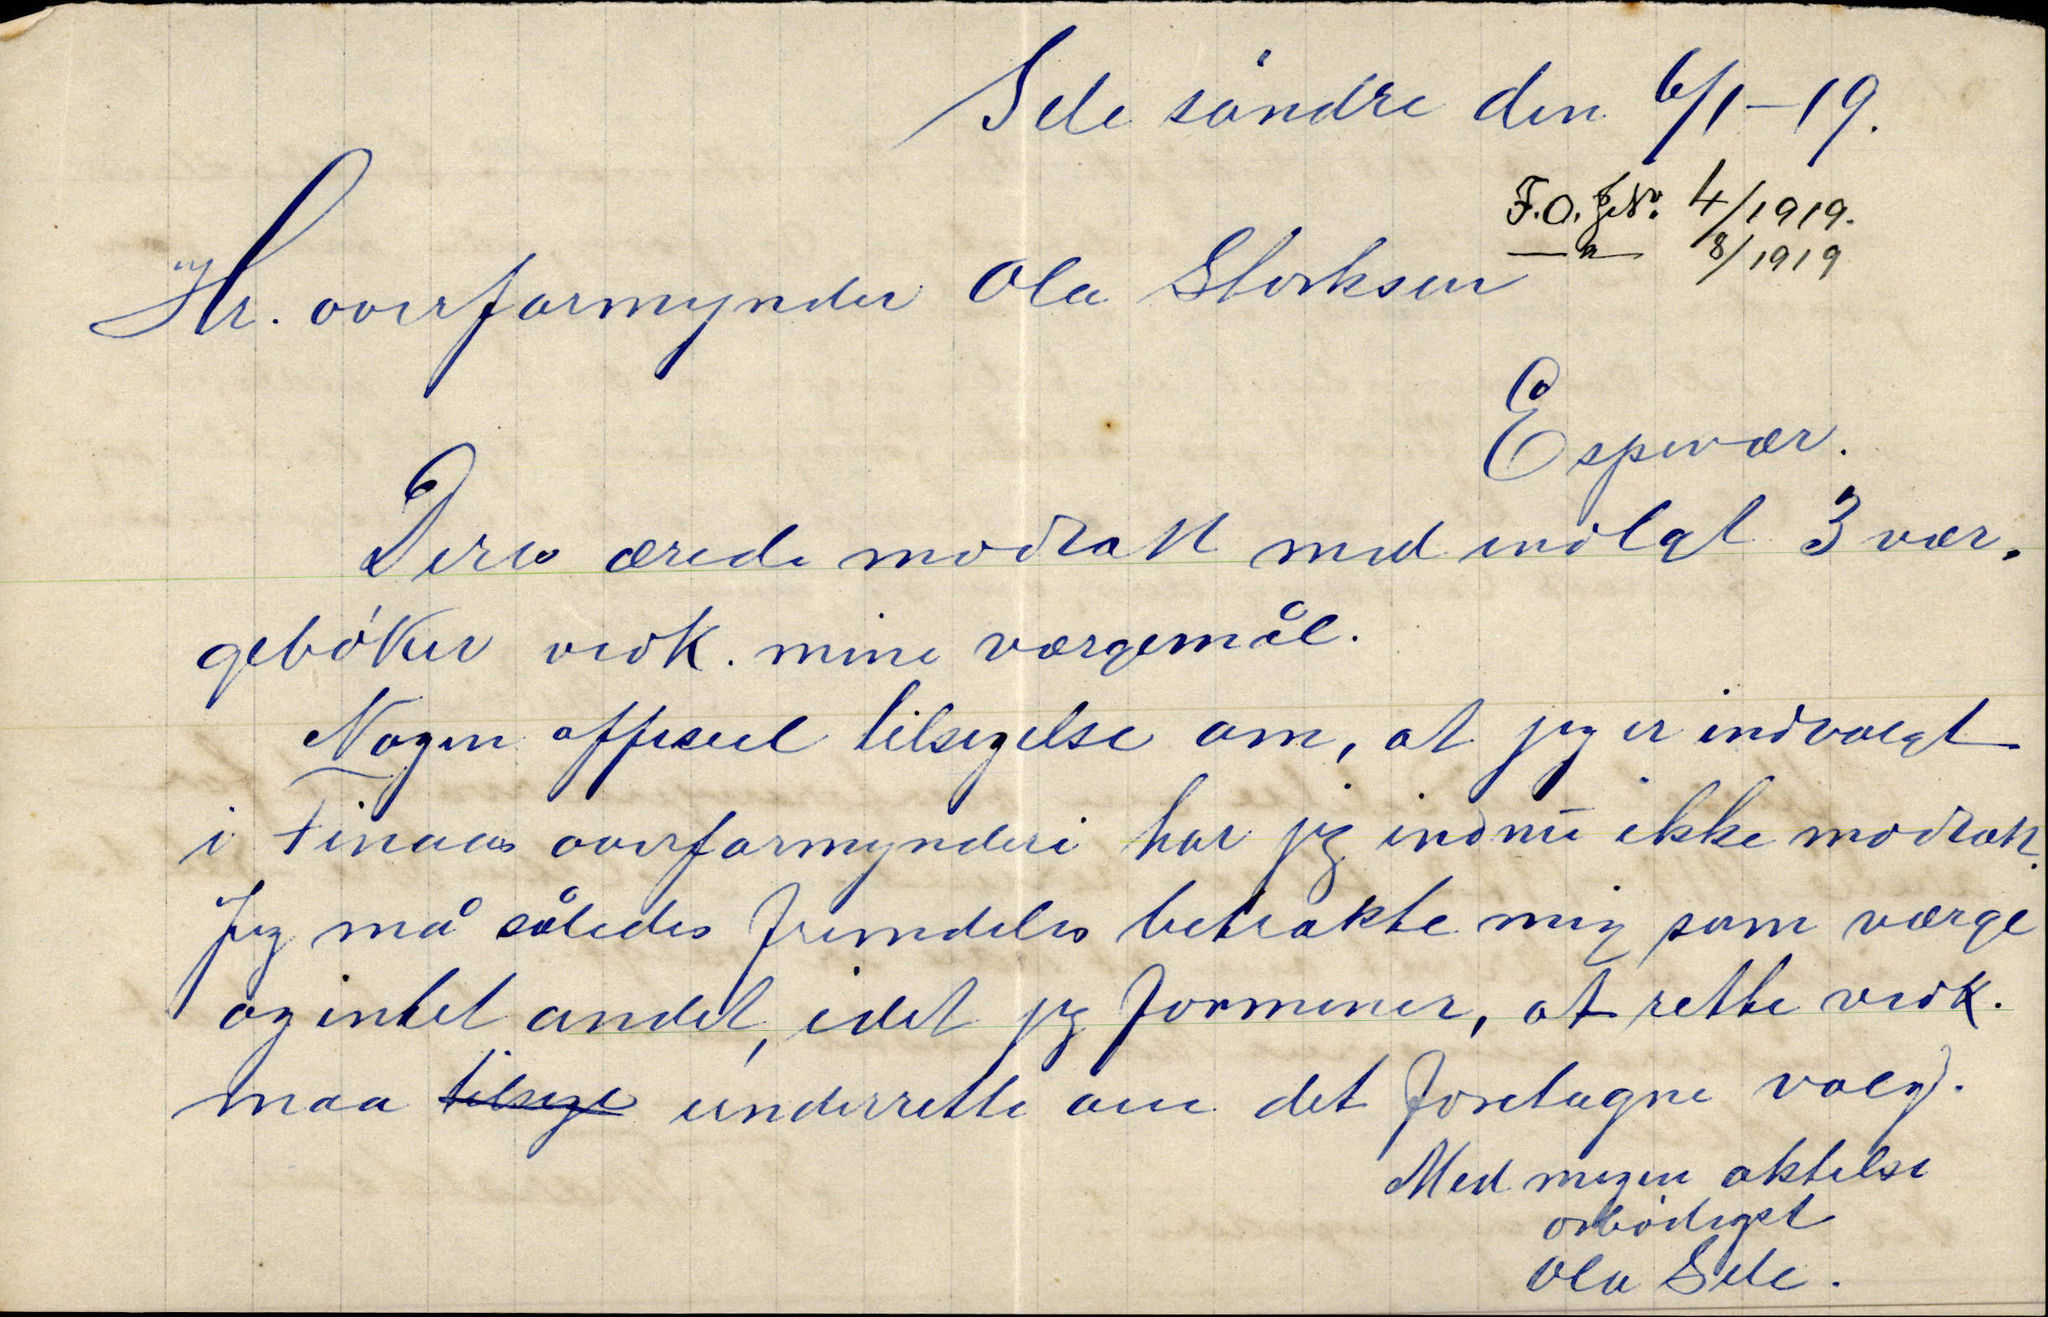 Sele söndre den 6/1-19.
F.O. J.No. 4/1919.
— " — 8/1919
Hr. overformynder Ola Storksen
Espevær.
Deres ærede modtatt med indlagt 3 vær-
gebøker vedk. mine værgemål.
Nogen offisiel tilsigelse om, at jeg er indvalgt
i Finaas overformynderi har jeg indnu ikke modtatt.
Jeg må således fremdeles betrakte mig som værge
og intet andet, idet jeg formener, at rette vedk.
maa ~~tilsige~~ underrette om det foretagne valg.
Med megen aktelse
ærbødigst
Ola Sele.